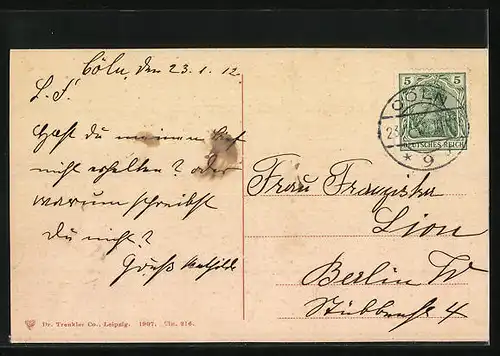 Cöln, den 23.1.12
L. F.
Hast du meinen
nicht erhalten? oder
warum schreibst
du nicht?
Gruß Mathilde
5 5
CÖLN
23
DEUTSCHES REICH
* 9
Frau Franziska
Lion
Berlin W
Stübbenstr 4
Dr. Trenkler Co., Leipzig. 1907. Cln. 216.